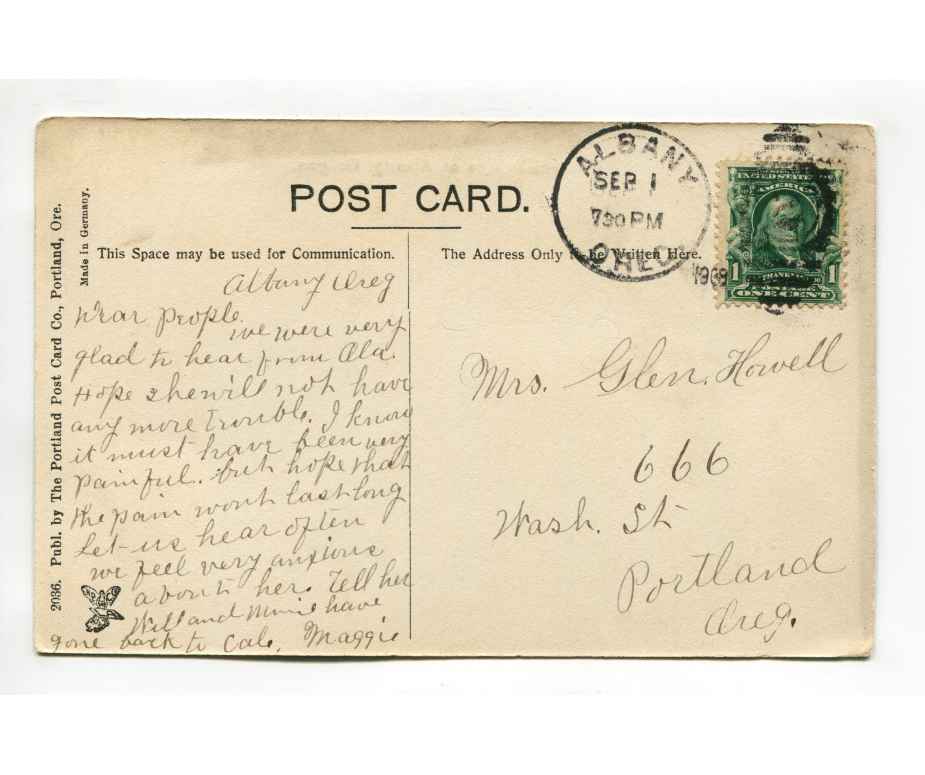 POST CARD.
This Space may be used for Communication.
The Address Only to be Written Here.
2036. Publ. by The Portland Post Card Co., Portland, Ore.
Made in Germany.
ALBANY
SEP 1
730 PM
OREG.
1908
UNITED STATES
AMERICA
FRANKLIN
1 1
POSTAGE
ONE CENT
Albany Oreg
Dear People.
we were very
glad to hear from Ala.
Hope she will not have
any more trouble. I know
it must have been very
painful. but hope that
the pain wont last long
Let us hear often
we feel very anxious
about her. Tell her
Will and Minie have
gone back to Cal. Maggie
Mrs. Glen. Howell
666
Wash. St
Portland
Oreg.